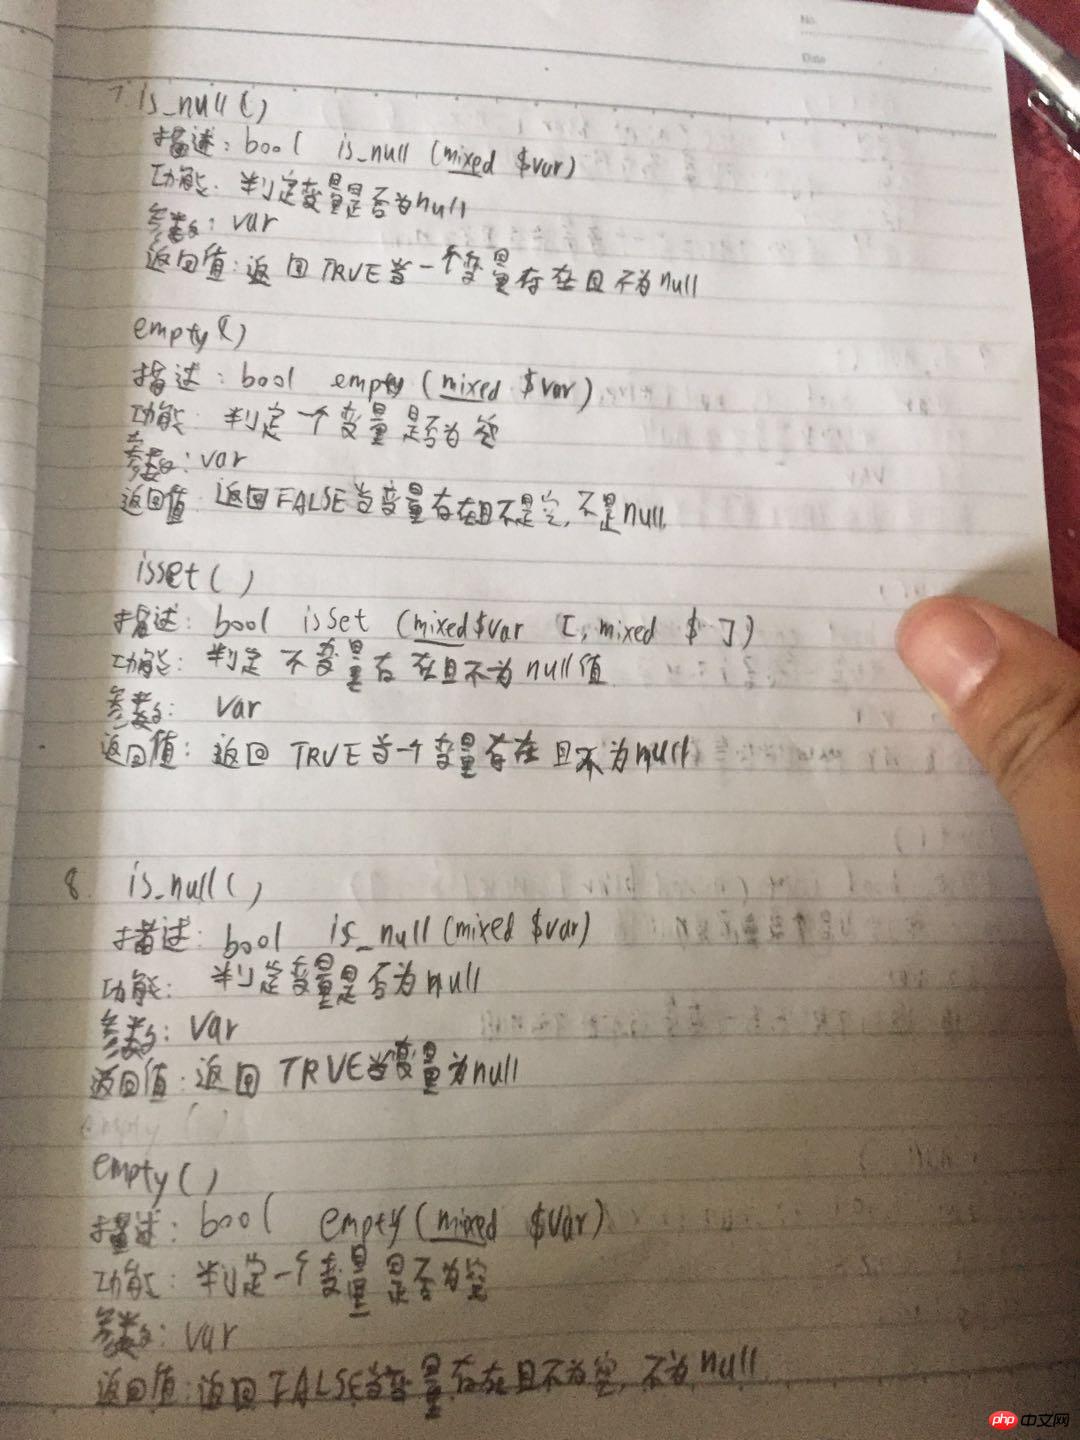 No.
Date
7. is_null()
描述: bool is_null (mixed $var)
功能: 判定变量是否为null
参数: var
返回值: 返回TRUE当一个变量存在且不为null
empty()
描述: bool empty (mixed $var)
功能: 判定一个变量是否为空
参数: var
返回值: 返回FALSE当变量存在且不是空,不是null
isset()
描述: bool isset (mixed $var [, mixed $ ])
功能: 判定不变量存在且不为null值
参数: var
返回值: 返回TRUE当一个变量存在且不为null
8. is_null()
描述: bool is_null (mixed $var)
功能: 判定变量是否为null
参数: var
返回值: 返回TRUE当变量为null
empty()
empty()
描述: bool empty (mixed $var)
功能: 判定一个变量是否为空
参数: var
返回值: 返回FALSE当变量存在且不为空,不为null
php 中文网